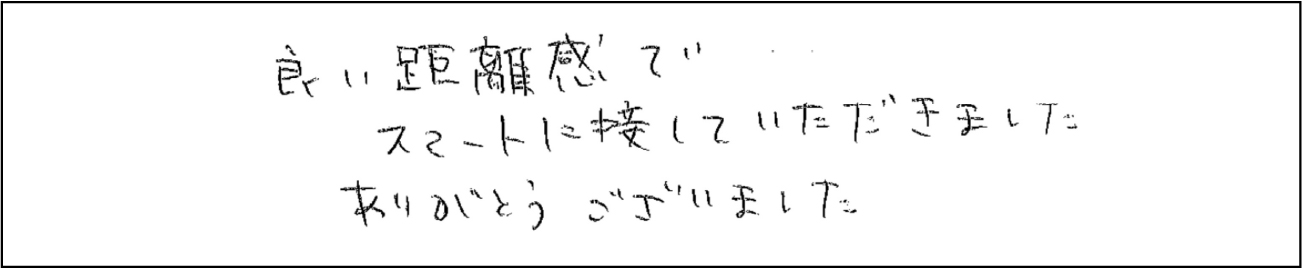 良い距離感で
スマートに接していただきました
ありがとうございました